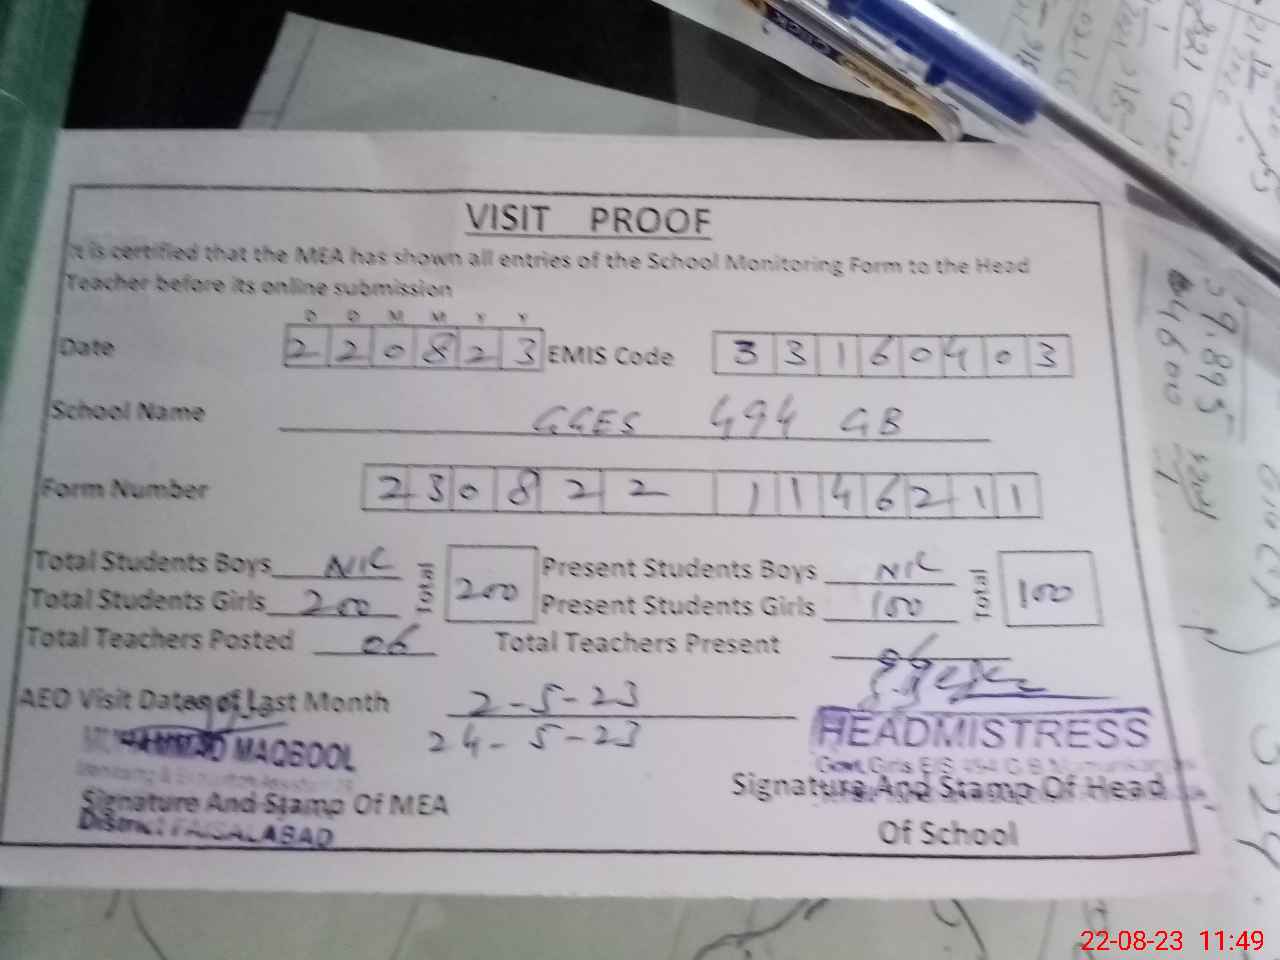 VISIT PROOF
It is certified that the MEA has shown all entries of the School Monitoring Form to the Head
Teacher before its online submission
D D M M Y Y
Date 2 2 0 8 2 3 EMIS Code 3 3 1 6 0 4 0 3
School Name GGES 494 GB
Form Number 2 3 0 8 2 2 1 1 4 6 2 1 1
Total Students Boys NIL Total 200 Present Students Boys NIL Total 100
Total Students Girls 200 Present Students Girls 100
Total Teachers Posted 06 Total Teachers Present
AEO Visit Dates of Last Month 2-5-23
24-5-23
MAQBOOL
HEADMISTRESS
Govt. Girls E/S 494 G.B
Signature And Stamp Of MEA
Signature And Stamp Of Head
Of School
District FAISALABAD
39.895
4600
22-08-23 11:49